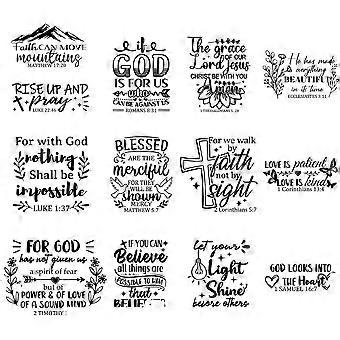 Faith CAN MOVE
mountains
MATTHEW 17:20
RISE UP AND
pray
LUKE 22:46
if
GOD
IS FOR US
CAN BE AGAINST US
ROMANS 8:31
The grace
OF OUR
Lord Jesus
CHRIST BE WITH YOU
He has made
everything
BEAUTIFUL
in its time
ECCLESIASTES 3:11
For with God
nothing
Shall be
impossible
LUKE 1:37
BLESSED
ARE THE
merciful
FOR THEY
WILL BE
shown
MERCY
MATTHEW 5:7
For we walk
by
faith
not by
sight
2 Corinthians 5:7
LOVE IS patient
LOVE IS kind
1 Corinthians 13:4
FOR GOD
has not given us
a spirit of fear
but of
POWER & OF LOVE
OF A SOUND MIND
2 TIMOTHY 1
IF YOU CAN
Believe
all things are
POSSIBLE TO
HIM
that
BELIEVE
let your
Light
Shine
before others
GOD LOOKS INTO
THE Heart
1 SAMUEL 16:7